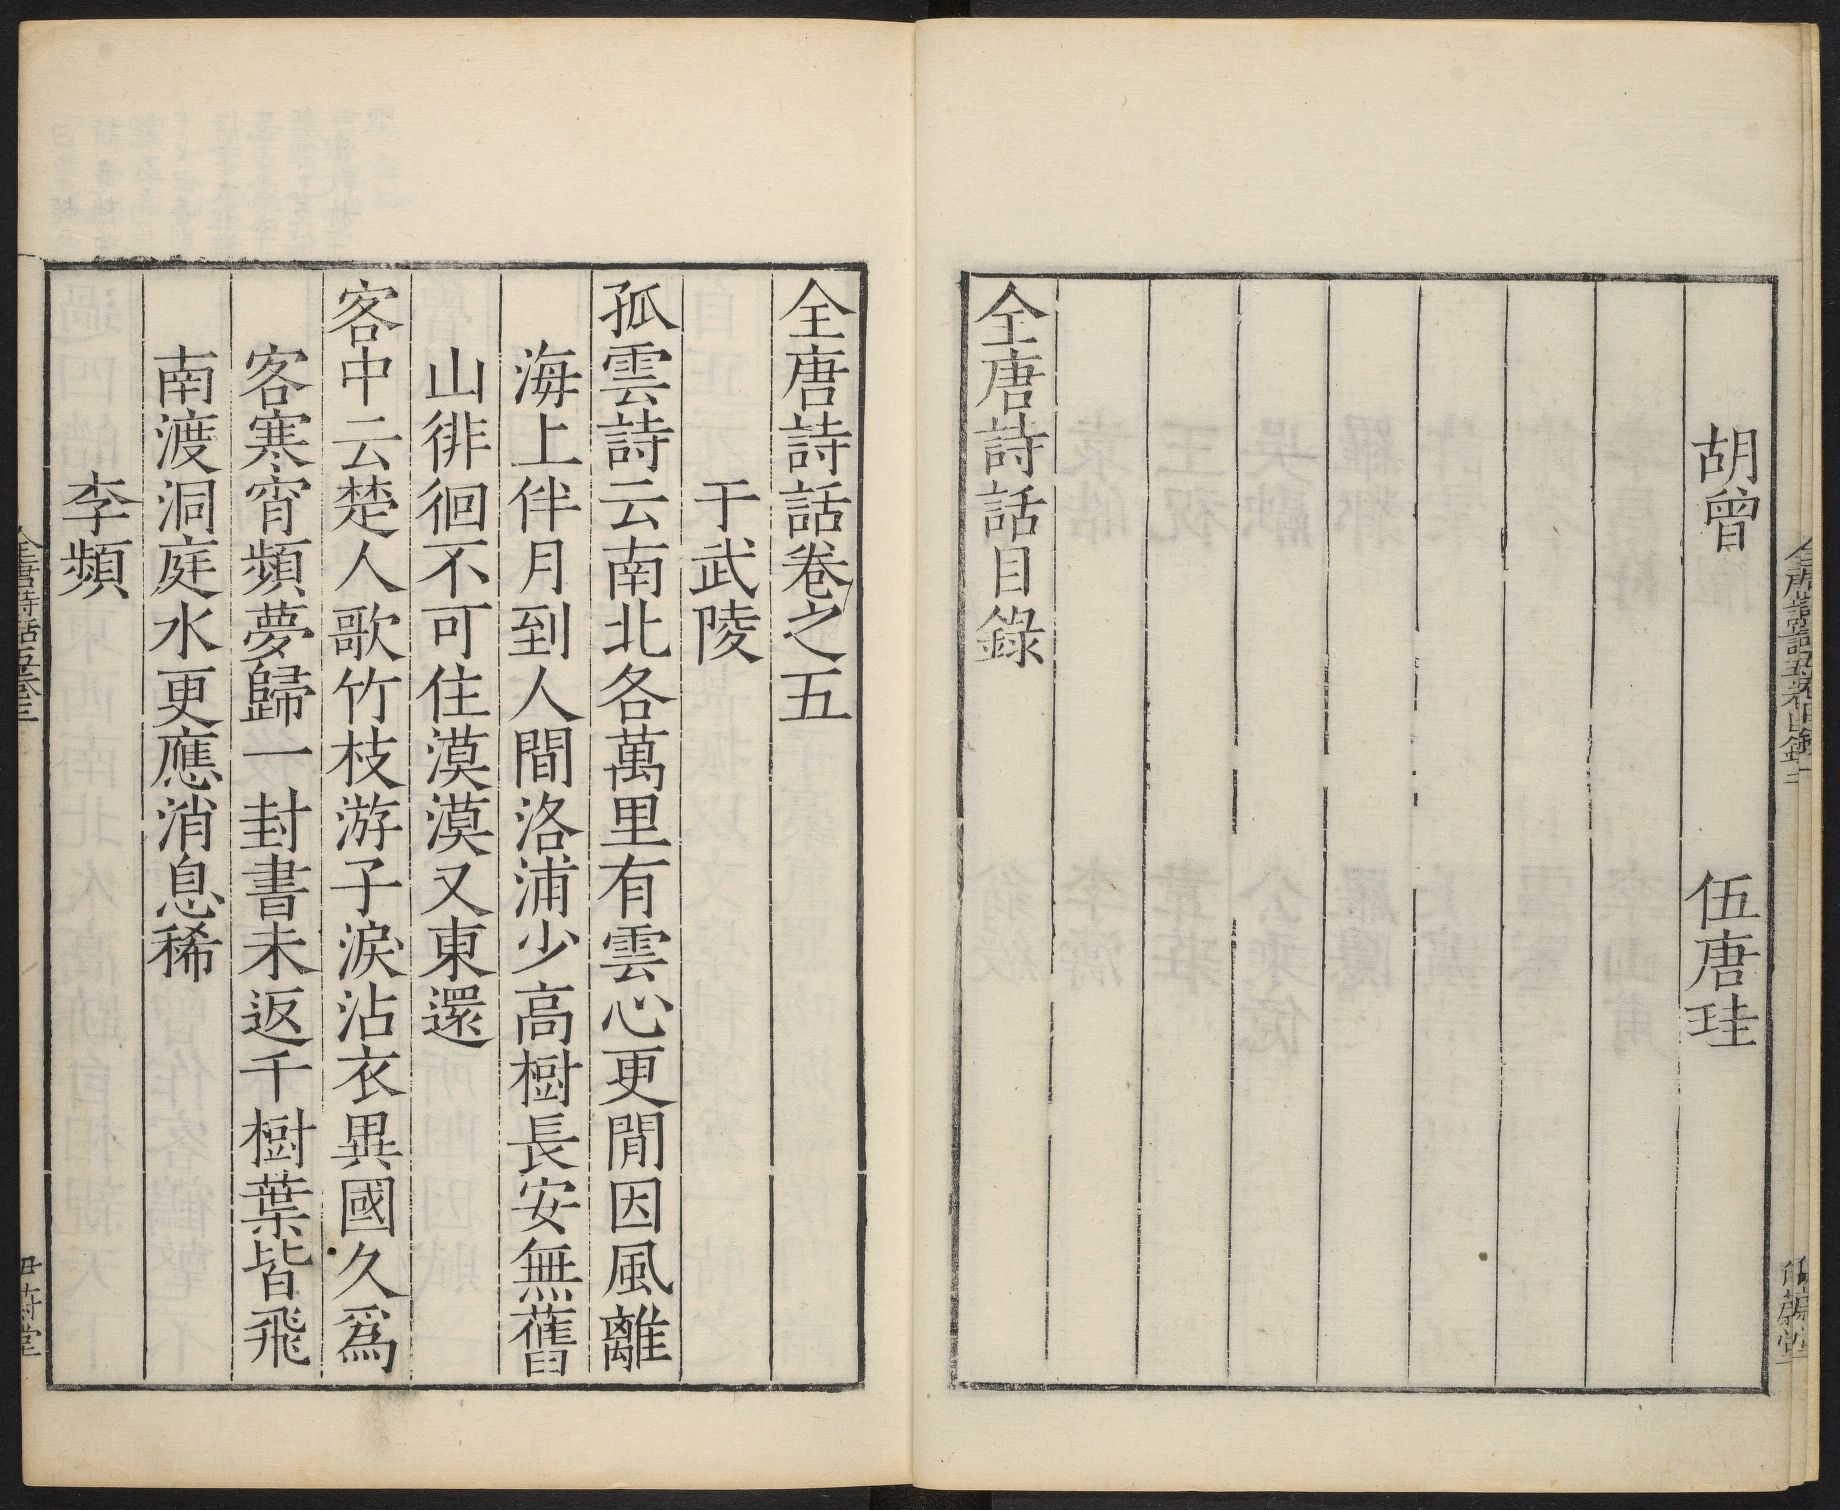 胡曾 伍唐珪
全唐詩話目錄
全唐詩話卷之五
于武陵
孤雲詩云南北各萬里有雲心更閒因風離
海上伴月到人間洛浦少高樹長安無舊
山徘徊不可住漠漠又東還
客中云楚人歌竹枝游子淚沾衣異國久爲
客寒宵頻夢歸一封書未返千樹葉皆飛
南渡洞庭水更應消息稀
李頻